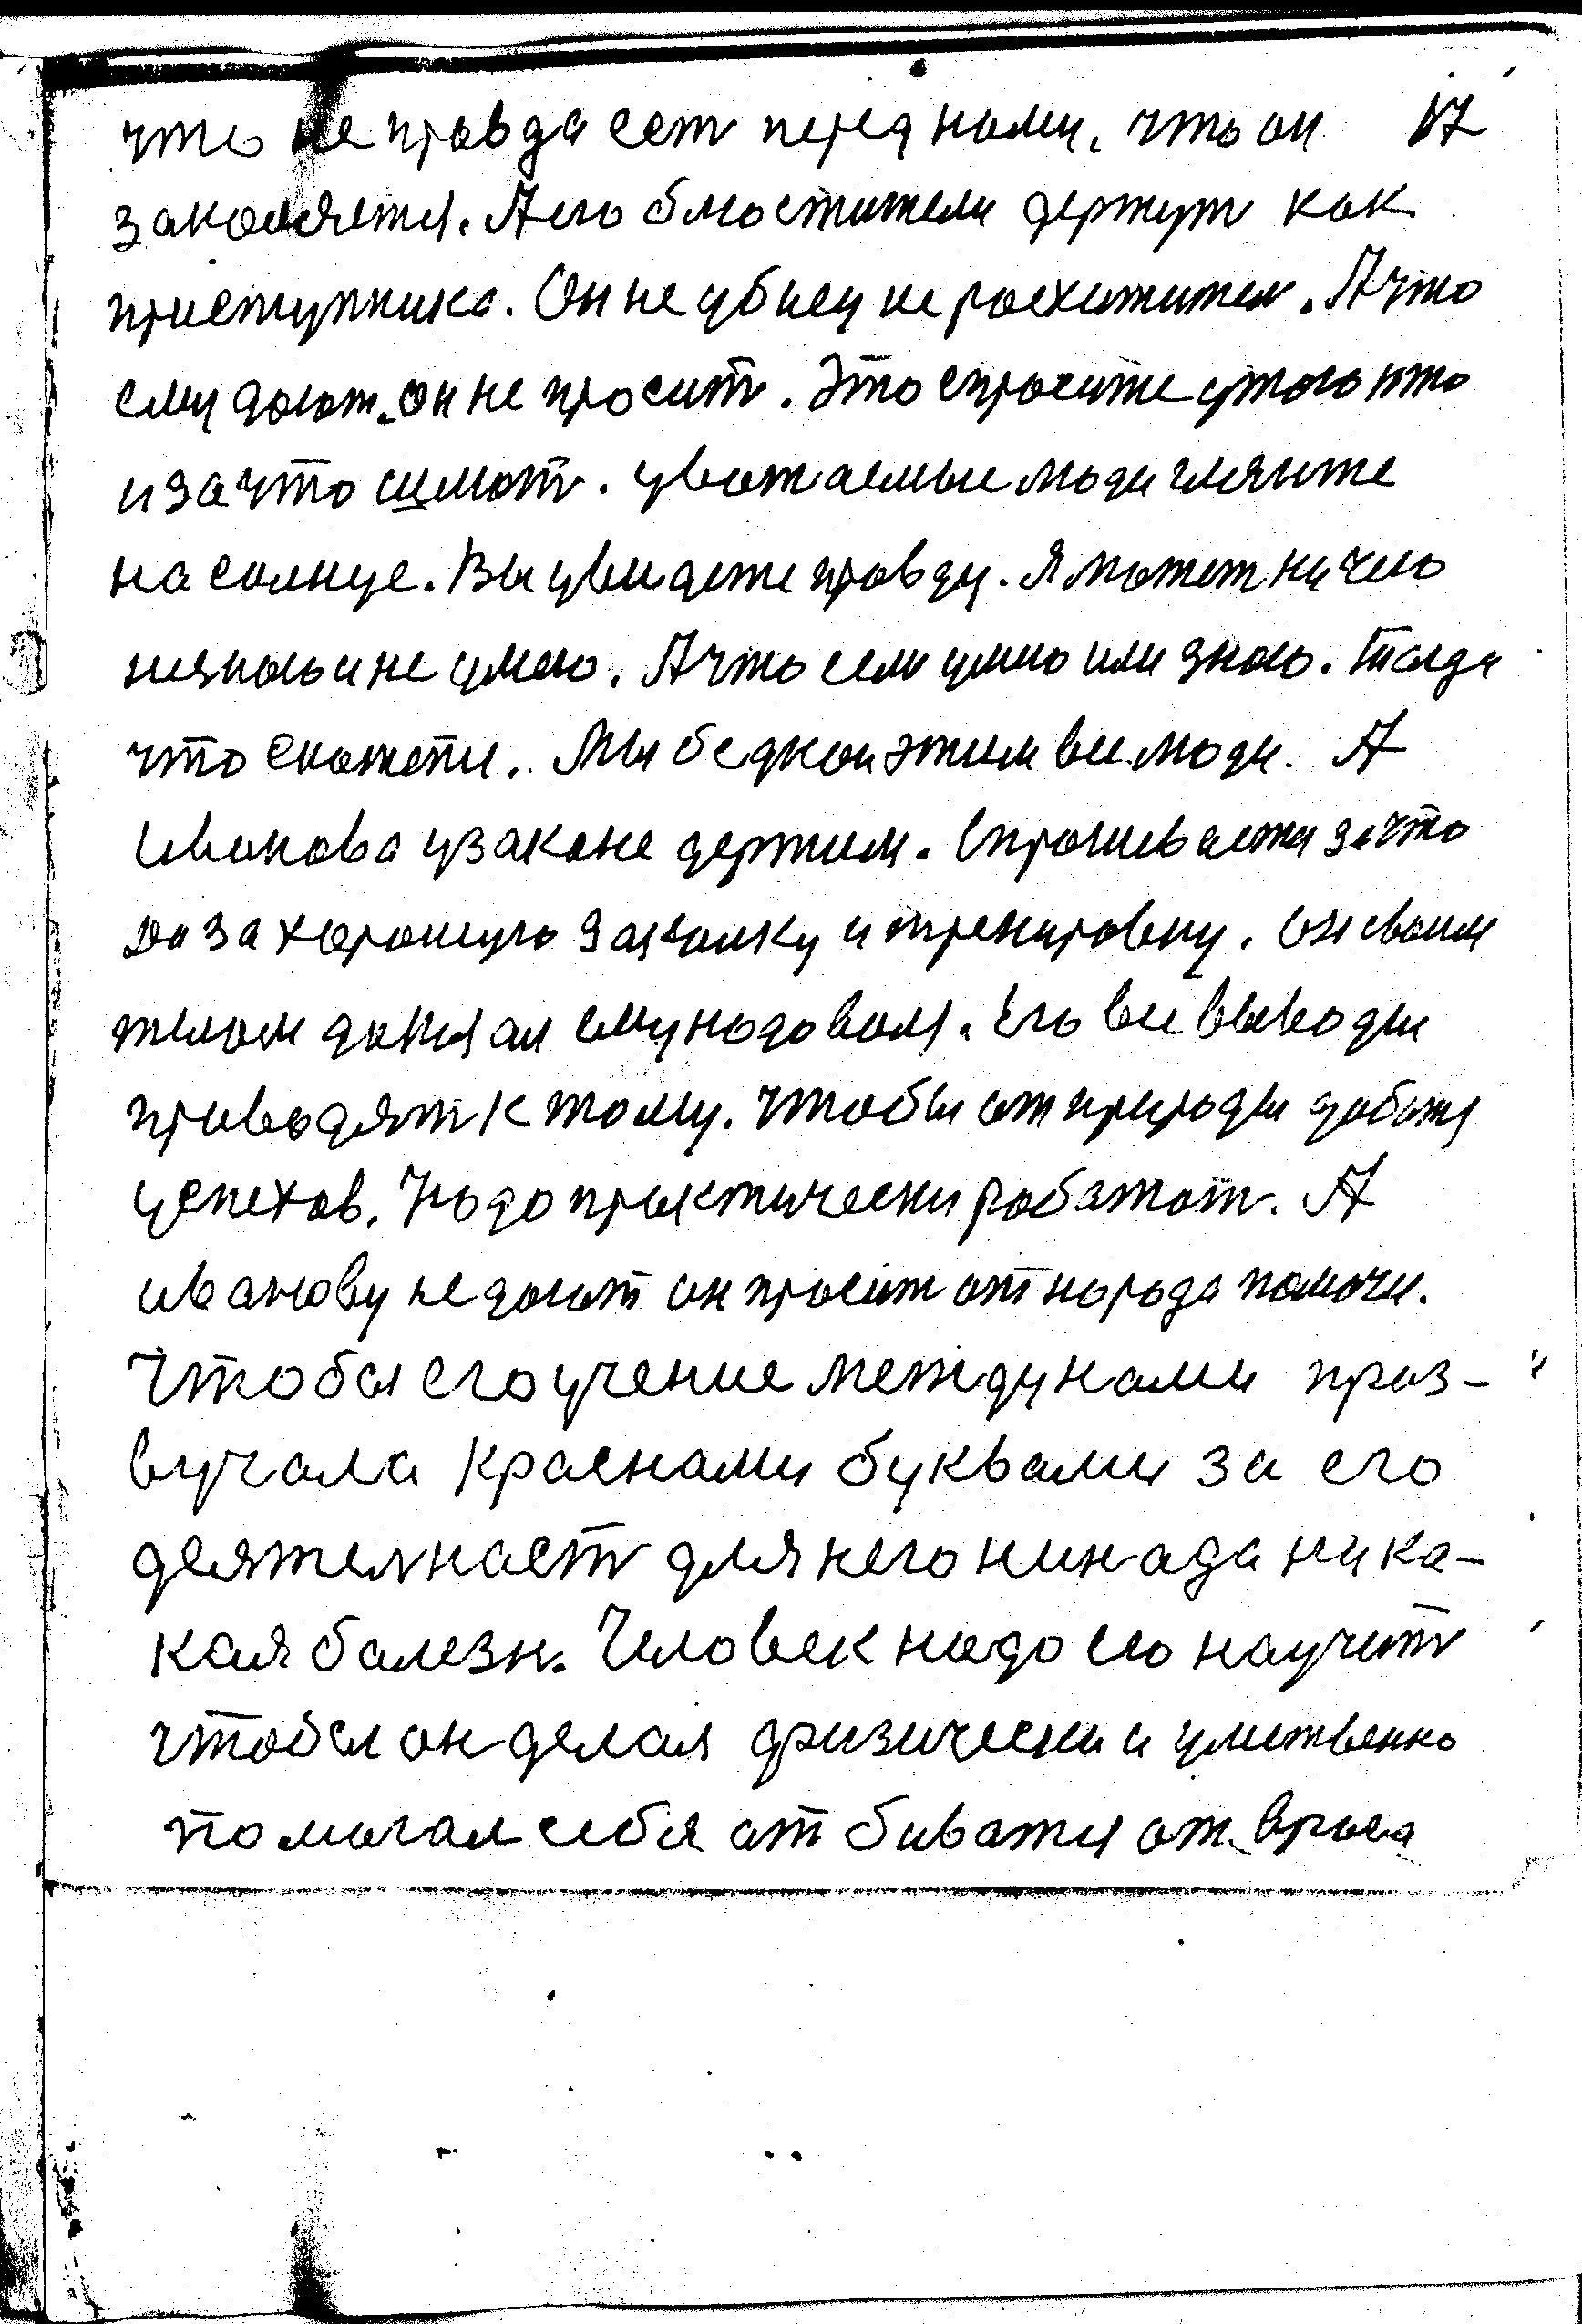 что не правда ест перед нами, что он 17
закаляятся. А его блюстители держут как
приступника. Он не убиец не расхититель. А что
ему дают. он не просит. Это спросите у того кто
и за что силают. уважаемые люди гляньте
на солнце. Вы увидете правду. Я может ничего
незнаю и не умею. А что если умею или знаю. Тагда
что скажети. Мы бедном этим все люди. А
Иванова у законе держим. Спрашивается за что
да за харошую закалку и тренировку. он своим
телом доказал ему надо воля. Его все выводы
приводят к тому. чтобы от природы добится
успехов. Надо практически работат. А
иванову не дают он просит от народа помочи.
Чтобы его учение между нами праз-
вучала красными буквами за его
деятелност для него нинада ника-
кая балезн. Человек надо его научит
чтобы он делал физически и умственно
помогал себя отбиватся от врага